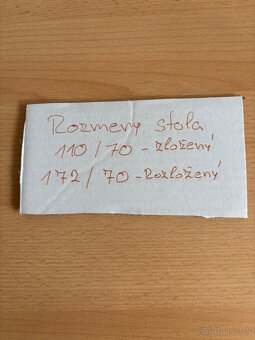 Rozmery stola
110/70 - zložený
172/70 - Rozložený